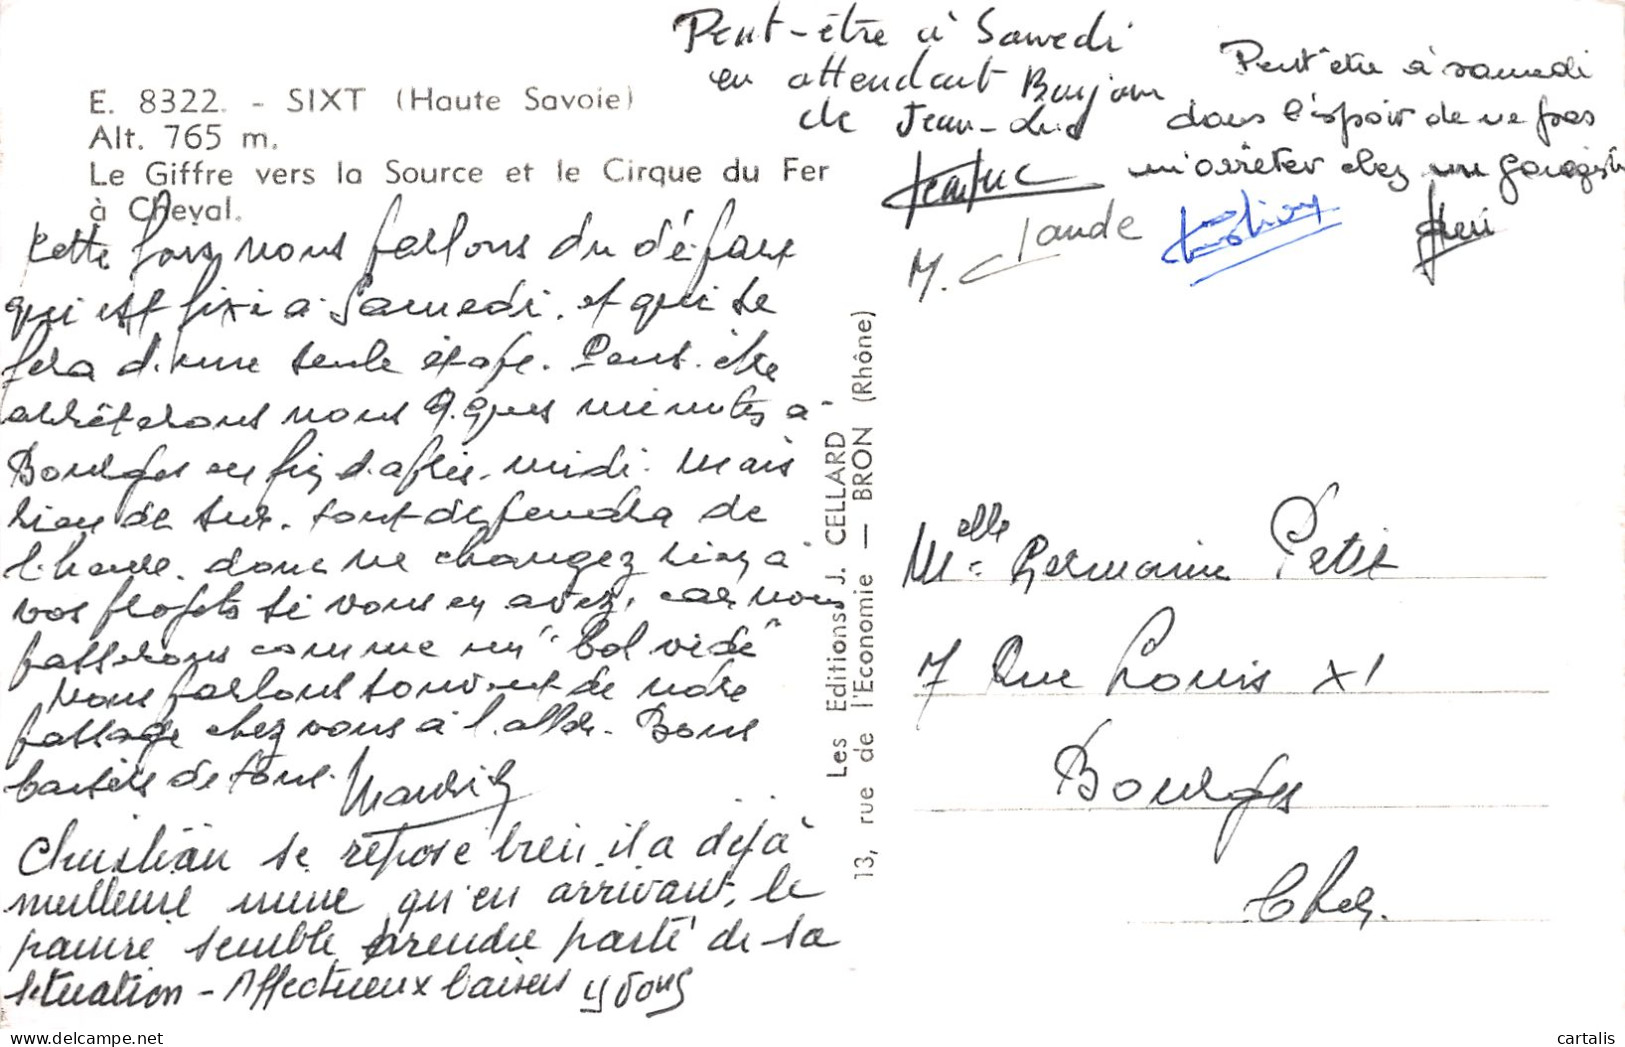 E. 8322. - SIXT (Haute Savoie)
Alt. 765 m.
Le Giffre vers la Source et le Cirque du Fer
à Cheval.
Cette fois, nous parlons du départ
qui est fixé à Samedi. et qui se
fera d'une seule étape. Peut-être
arrêterons nous q.ques minutes à
Bourges en fin d'après-midi. Mais
rien de sûr. tout dépendra de
l'heure. donc ne changez rien à
vos projets si vous en avez, car nous
passerons comme un "bol vide"
Nous parlons souvent de notre
passage chez vous à l'aller. Bons
baisers de tous.
Christian se repose bien, il a déjà
meilleure mine qu'en arrivant, le
pauvre semble prendre parti de sa
situation - Affectueux baisers
Peut-être à Samedi
en attendant Bonjour
de Jean-Luc
Jean Luc
M. Claude
Peut être à samedi
dans l'espoir de ne pas
m'arrêter chez un garagiste
Les Editions J. CELLARD
13, rue de l'Economie — BRON (Rhône)
Melle Germaine Petit
7 Rue Louis XI
Bourges
Cher.
cartalis.com